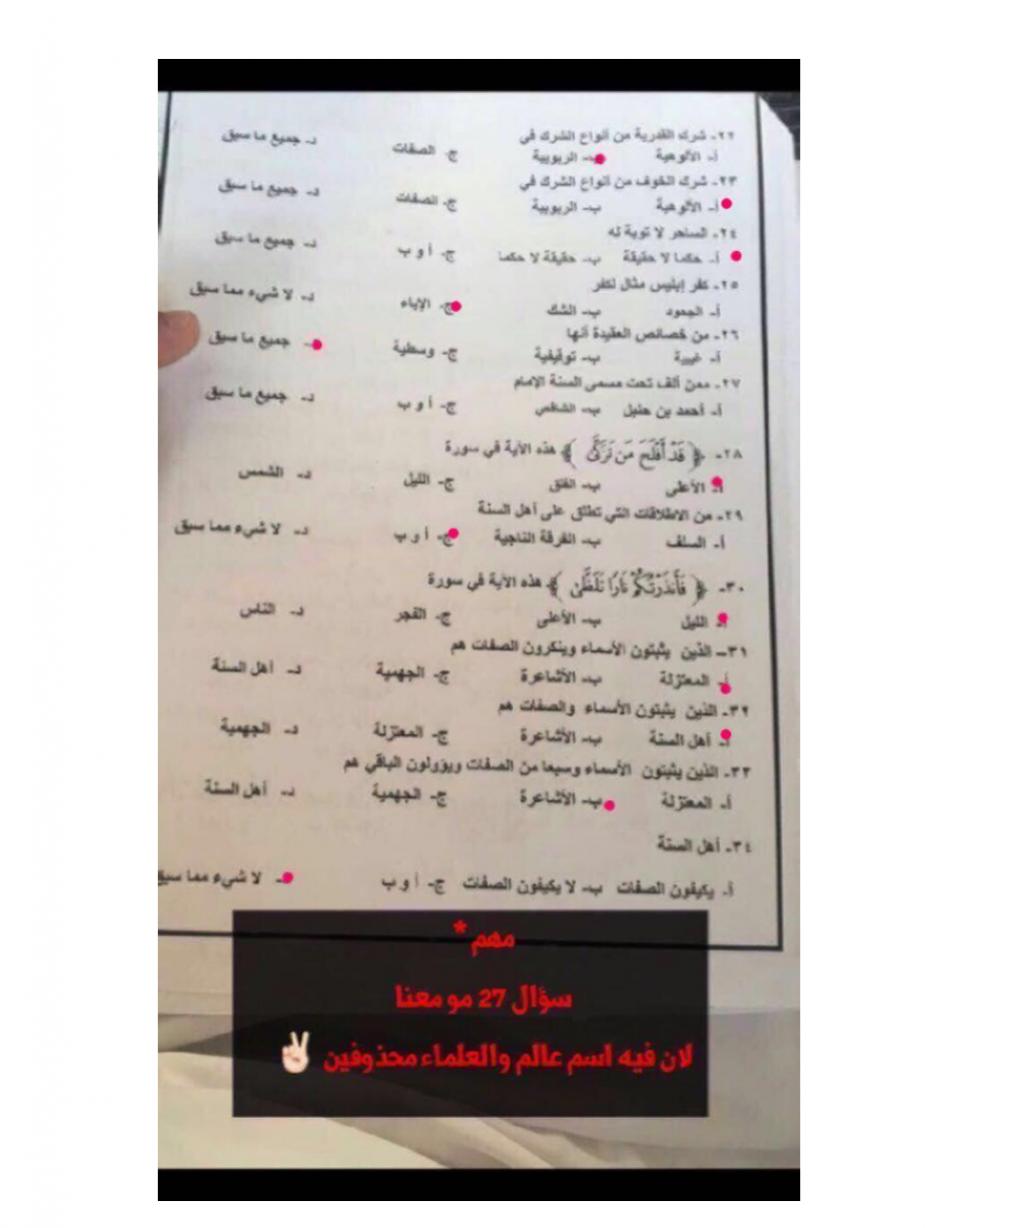 ٢٢- شرك القدرية من أنواع الشرك في
أ- الألوهية ب- الربوبية ج- الصفات د- جميع ما سبق
٢٣- شرك الخوف من أنواع الشرك في
أ- الألوهية ب- الربوبية ج- الصفات د- جميع ما سبق
٢٤- الساحر لا توبة له
أ- حكما لا حقيقة ب- حقيقة لا حكما ج- أ و ب د- جميع ما سبق
٢٥- كفر إبليس مثال لكفر
أ- الجحود ب- الشك ج- الإباء د- لا شيء مما سبق
٢٦- من خصائص العقيدة أنها
أ- غيبية ب- توقيفية ج- وسطية د- جميع ما سبق
٢٧- ممن ألف تحت مسمى السنة الإمام
أ- أحمد بن حنبل ب- الشافعي ج- أ و ب د- جميع ما سبق
٢٨- ﴿ قَدْ أَفْلَحَ مَن تَزَكَّىٰ ﴾ هذه الآية في سورة
أ- الأعلى ب- الفلق ج- الليل د- الشمس
٢٩- من الاطلاقات التي تطلق على أهل السنة
أ- السلف ب- الفرقة الناجية ج- أ و ب د- لا شيء مما سبق
٣٠- ﴿ فَأَنذَرْتُكُمْ نَارًا تَلَظَّىٰ ﴾ هذه الآية في سورة
أ- الليل ب- الأعلى ج- الفجر د- الناس
٣١- الذين يثبتون الأسماء وينكرون الصفات هم
أ- المعتزلة ب- الأشاعرة ج- الجهمية د- أهل السنة
٣٢- الذين يثبتون الأسماء والصفات هم
أ- أهل السنة ب- الأشاعرة ج- المعتزلة د- الجهمية
٣٣- الذين يثبتون الأسماء وسبعا من الصفات ويؤولون الباقي هم
أ- المعتزلة ب- الأشاعرة ج- الجهمية د- أهل السنة
٣٤- أهل السنة
أ- يكيفون الصفات ب- لا يكيفون الصفات ج- أ و ب د- لا شيء مما سبق
مهم*
سؤال 27 مو معنا
لان فيه اسم عالم والعلماء محذوفين ✌🏻